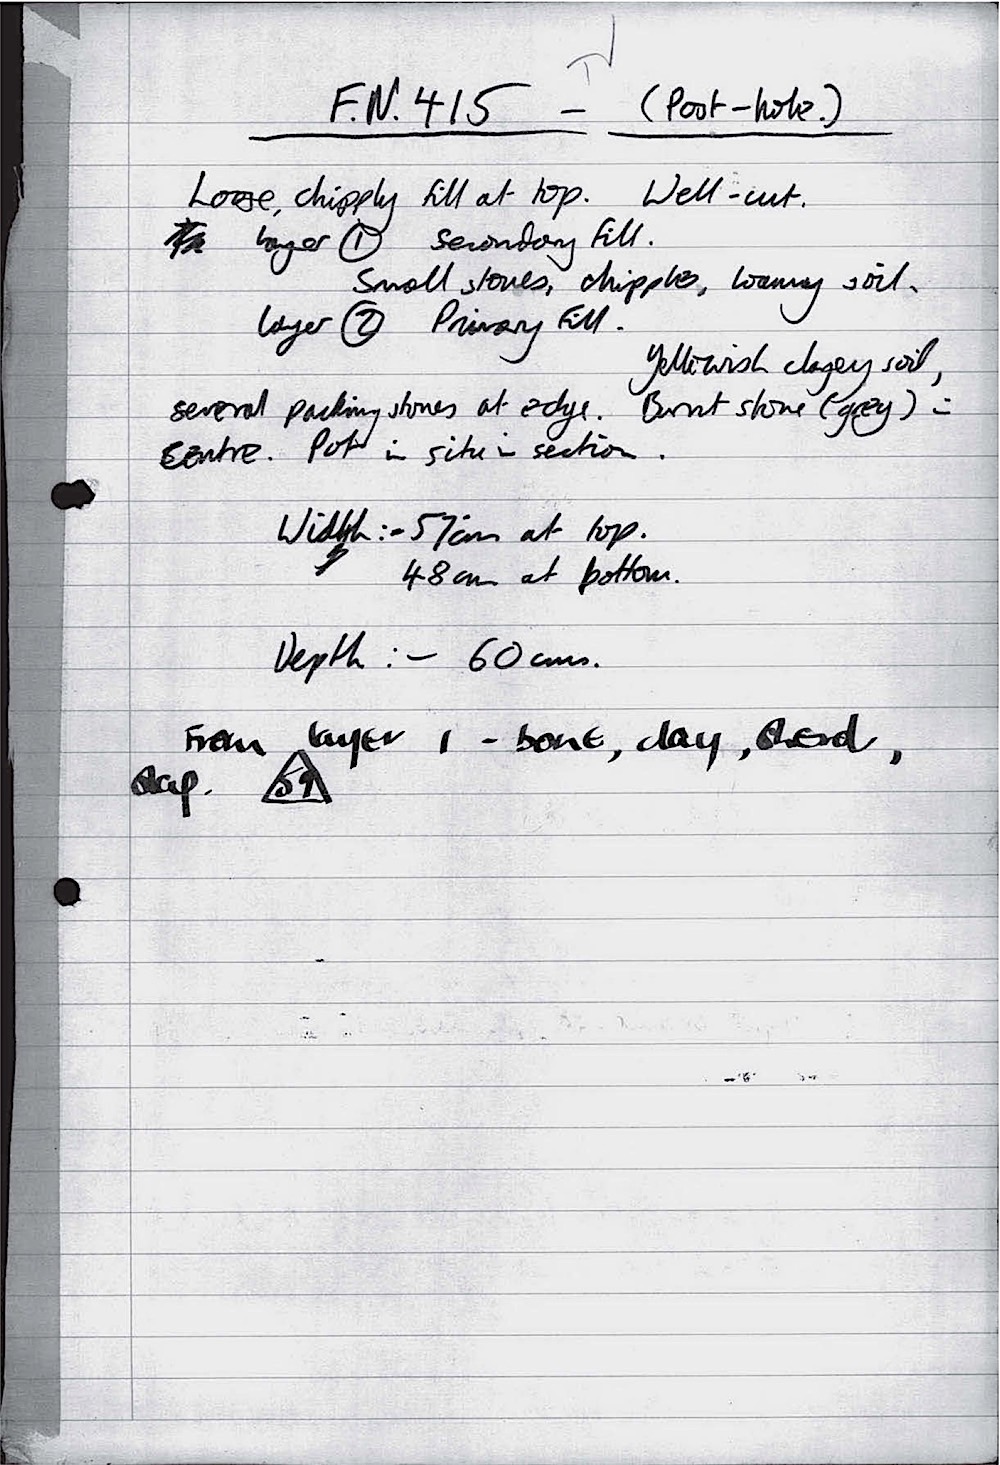 F.N. 415 - (Post-hole.)
Loose, chipply fill at top. Well-cut.
layer ① secondary fill.
Small stones, chipples, loamy soil.
layer ② Primary fill.
Yellowish clayey soil,
several packing stones at edge. Burnt stone (grey) in
centre. Pot in situ in section.
Width :- 57cm at top.
48cm at bottom.
Depth :- 60cms.
From layer 1 - bone, clay, sherd,
59